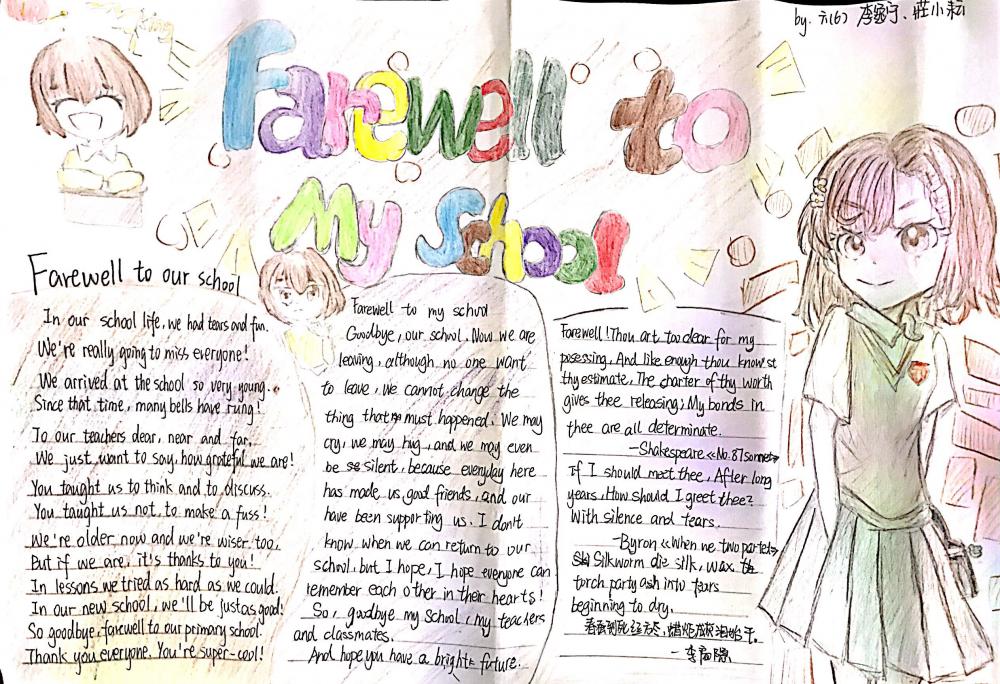 by. 六(6) 李家宁、莊小耘
Farewell to
My School!
Farewell to our school
In our school life, we had tears and fun.
We're really going to miss everyone!
We arrived at the school so very young...
Since that time, many bells have rung!
To our teachers dear, near and far,
We just want to say, how grateful we are!
You taught us to think and to discuss.
You taught us not to make a fuss!
We're older now and we're wiser too,
But if we are, it's thanks to you!
In lessons we tried as hard as we could.
In our new school, we'll be just as good!
So goodbye, farewell to our primary school.
Thank you everyone. You're super-cool!
Farewell to my school
Goodbye, our school. Now we are
leaving, although no one want
to leave, we cannot change the
thing that must happened. We may
cry, we may hug, and we may even
be silent, because everyday here
has made us good friends, and our
have been supporting us. I don't
know when we can return to our
school, but I hope, I hope everyone can
remember each other in their hearts!
So, goodbye my school, my teachers
and classmates.
And hope you have a bright future.
Farewell! Thou art too dear for my
posessing, And like enough thou know'st
thy estimate, The charter of thy worth
gives thee releasing; My bonds in
thee are all determinate.
—Shakespeare《No.87sonnet》
If I should meet thee, After long
years, How should I greet thee?
With silence and tears.
—Byron《When we two parted》
Silkworm die silk, wax
torch party ash into tears
beginning to dry.
春蚕到死丝方尽，蜡炬成灰泪始干。
—李商隐